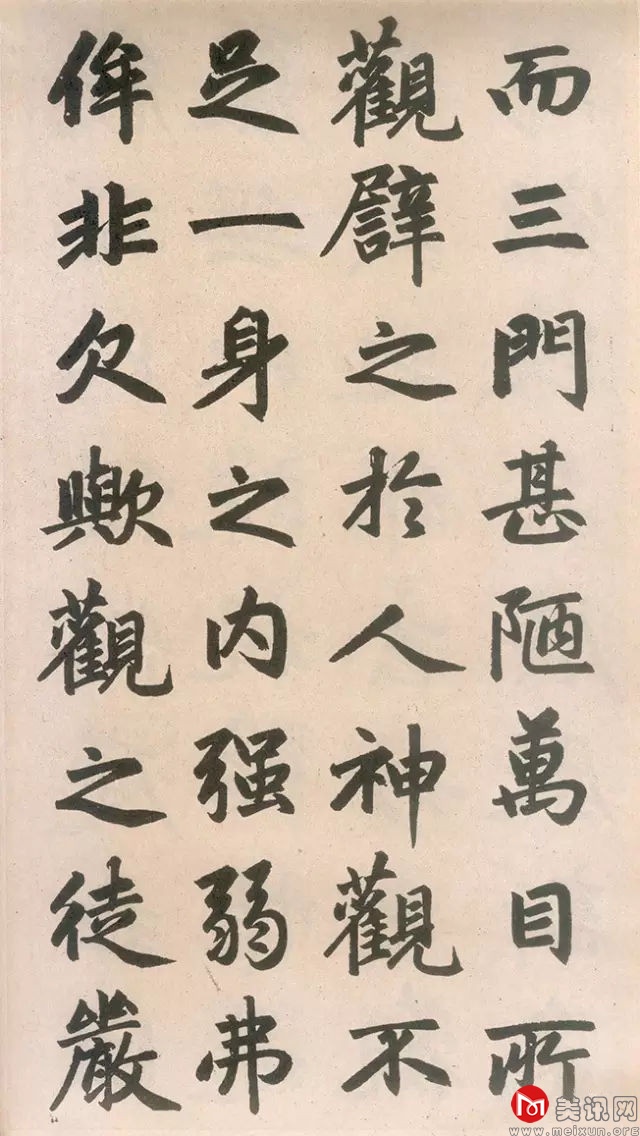 而三門甚陋萬目所
觀譬之於人神觀不
足一身之内强弱弗
侔非欠歟觀之徒嚴
美讯网
www.meixun.org